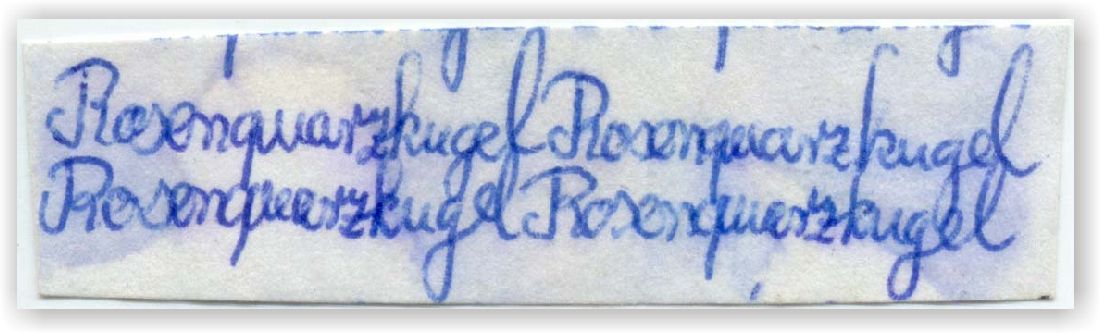 Rosenquarzkugel Rosenquarzkugel
Rosenquarzkugel Rosenquarzkugel